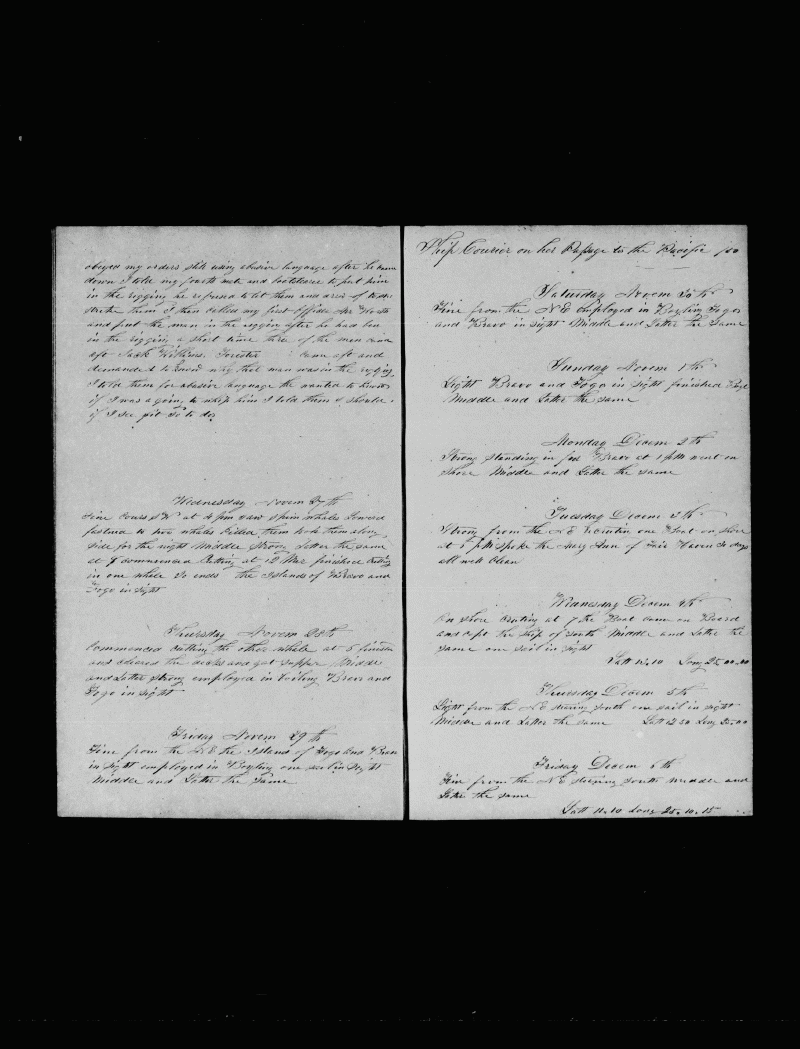 obeyed my orders still using abusive language after he came
down I told my fourth mate and bootsteerer to put him
in the rigging he refused to let them and
strike them I then called my first officer Mr
and put the man in the rigging after he had ben
in the rigging a short time three of the men came
aft Jack Wilkins. Forister came aft and
demanded to know why that man was in the rigging
I told them for abusive language the wanted to know
if I was a going to whip him I told them I should
if I see fit to do
Wednesday Novem 27th
Fine Cours SW at 4 pm saw spirm whales Lowered
fastned to two whales killed them took them along
side for the night Middle strong Latter the same
at 7 commenced Cutting at 12 Mer finished Cutting
in one whale So ends the Islands of Bravo and
Fogo in sight
Thursday Novem 28th
Commenced cutting the other whale at 5 finished
and cleared the decks and got supper Middle
and Latter strong employed in boiling Bravo and
Fogo in sight
Friday Novem 29th
Fine from the NE the Island of Fogo and Bravo
in sight employed in Boyling one sail in sight
Middle and Latter the Same
Ship Courier on her Passage to the Pacific
Saturday Novem 30th
Fine from the NE employed in Boyling Fogo
and Bravo in sight Middle and Latter the same
Sunday Novem 1th
Light Bravo and Fogo in sight finished
Middle and Latter the same
Monday Decem 2th
Strong standing in for Bravo at 1 PM went on
shore Middle and Latter the same
Tuesday Decem 3th
Strong from the NE one Boat on shore
at 5 PM spoke the Mary Ann of Fair Haven 30 days
all well Clean
Wednesday Decem 4th
On shore at 7 the Boat came on Board
and kept the ship of South Middle and Latter the
same one sail in sight
Latt 13.10 Long 25.00.00
Thursday Decem 5th
Light from the NE stearing south one sail in sight
Middle and Latter the same Latt 12 50 Long 25.00
Friday Decem 6th
Fine from the NE stearing south Middle and
Latter the same
Latt 11.20 Long 25.10.15